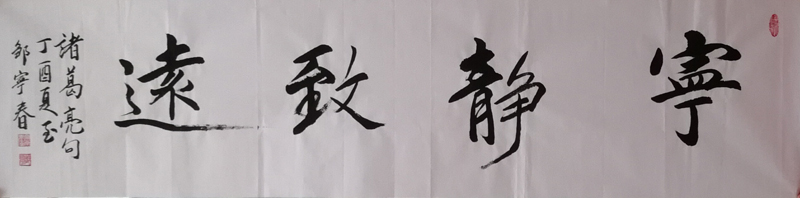 寧靜致遠
諸葛亮句
丁酉夏至
邹寧春